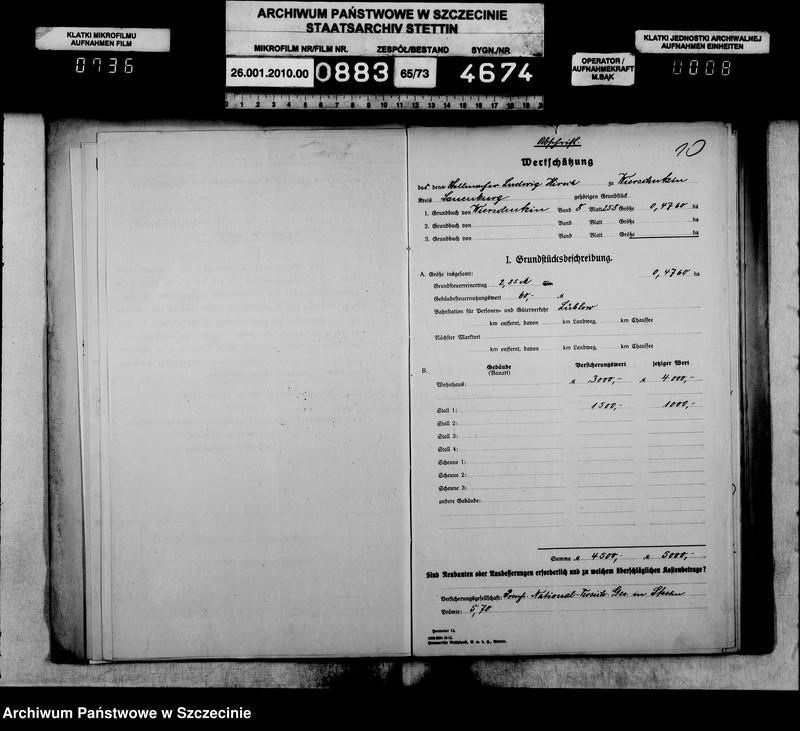 KLATKI MIKROFILMU
AUFNAHMEN FILM
0736
ARCHIWUM PAŃSTWOWE W SZCZECINIE
STAATSARCHIV STETTIN
MIKROFILM NR/FILM NR. ZESPÓŁ/BESTAND SYGN./NR
26.001.2010.00 0883 65/73 4674
1 2 3 4 5 6 7 8 9 10 11 12 13 14 15 16 17 18 19 20
OPERATOR /
AUFNAHMEKRAFT
M.BĄK
KLATKI JEDNOSTKI ARCHIWALNEJ
AUFNAHMEN EINHEITEN
0008
Abschrift.
10
Wertschätzung
des dem Ludwig Hirsch zu Vierschutzin
Kreis Lauenburg gehörigen Grundstück
1. Grundbuch von Vierschutzin Band 8 Blatt 258 Größe 0,4760 ha
2. Grundbuch von Band Blatt Größe ha
3. Grundbuch von Band Blatt Größe ha
I. Grundstücksbeschreibung.
A. Größe insgesamt: 0,4760 ha
Grundsteuerreinertrag 2,35 M
Gebäudesteuernutzungswert 60,- M
Bahnstation für Personen- und Güterverkehr Lüblow
km entfernt, davon km Landweg, km Chaussee
Nächster Marktort
km entfernt, davon km Landweg, km Chaussee
B. Gebäude Versicherungswert jetziger Wert
(Bauart)
Wohnhaus: M 3000,- M 4000,-
Stall 1: 1500,- 1000,-
Stall 2:
Stall 3:
Stall 4:
Scheune 1:
Scheune 2:
Scheune 3:
andere Gebäude:
Summa M 4500,- M 5000,-
Sind Neubauten oder Ausbesserungen erforderlich und zu welchem überschläglichen Kostenbetrage?
Versicherungsgesellschaft: Preuß. National-Versich. Ges. in Stettin
Prämie: 5,70
Archiwum Państwowe w Szczecinie